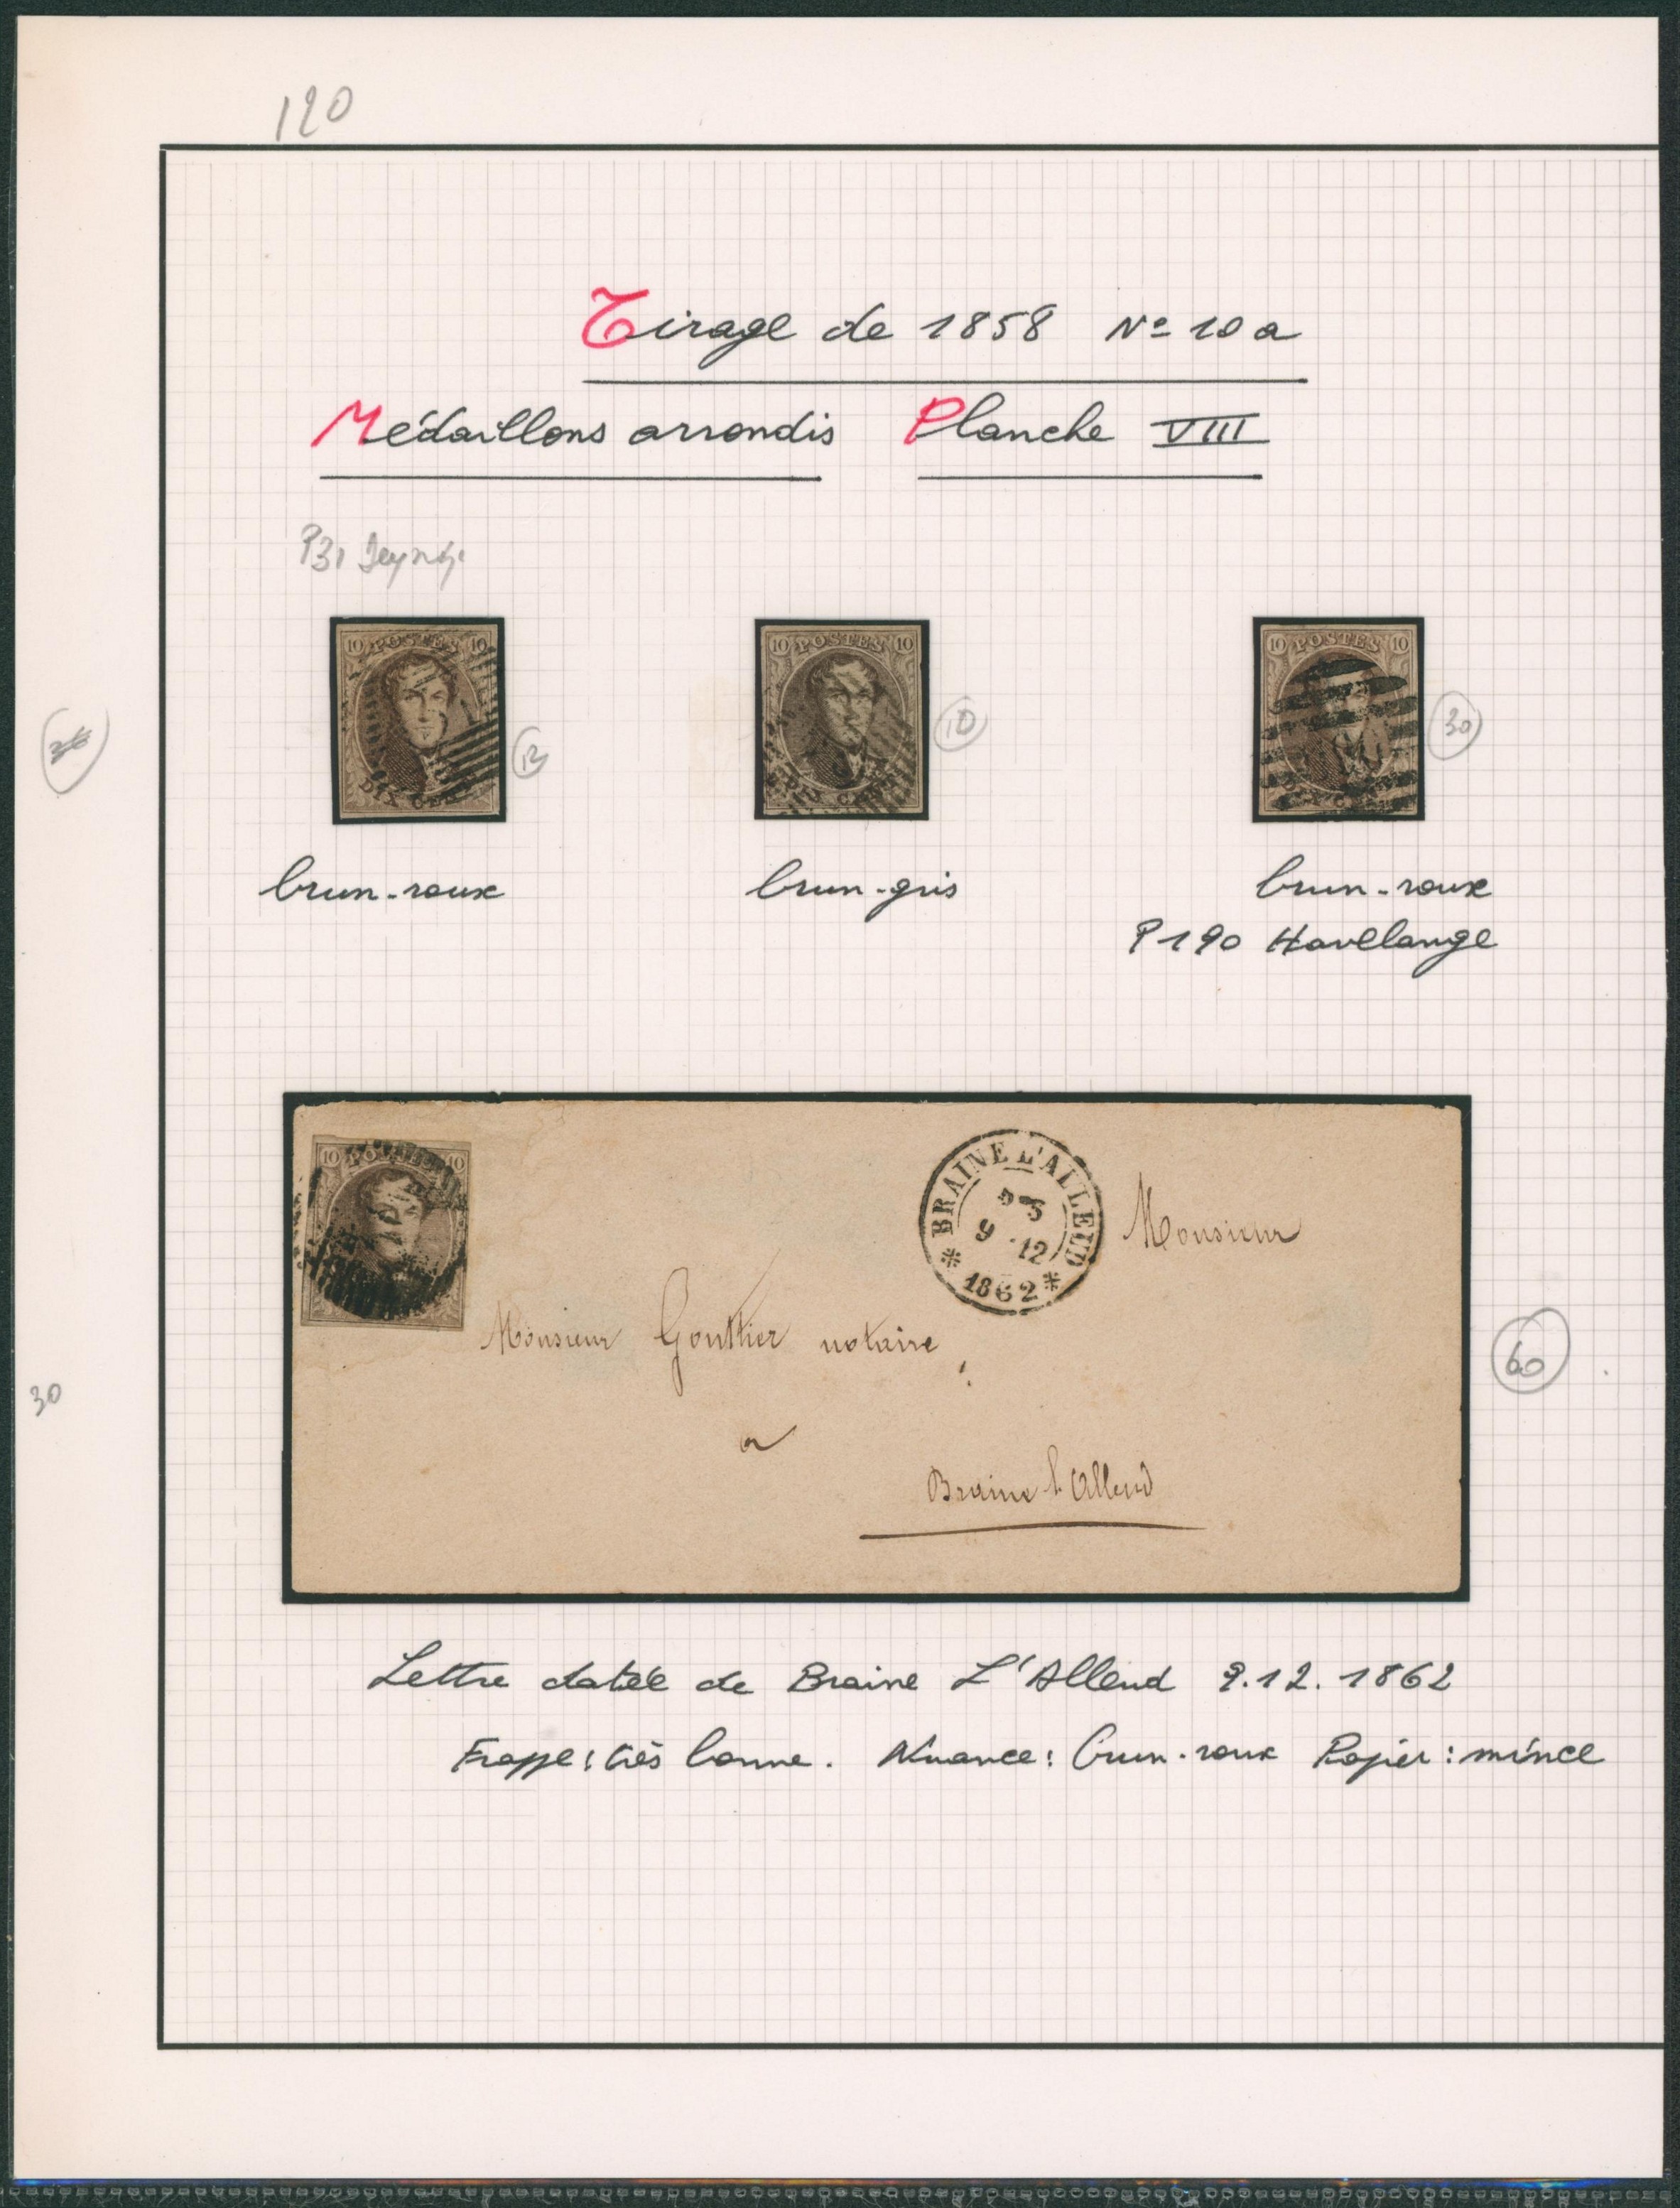 120
Tirage de 1858 N° 10a
Médaillons arrondis Planche VIII
P31
10 POSTES 10
DIX CEN
10 POSTES 10
10 POSTES 10
12
10
30
brun-roux
brun-gris
brun-roux
P190 Havelange
10 10
* BRAINE L'ALLEUD *
9 12
1862
Monsieur
Monsieur Gouttier notaire
a
Braine l'Alleud
60
30
Lettre datée de Braine L'Alleud 9.12.1862
Frappe: très bonne. Nuance: brun-roux Papier: mince